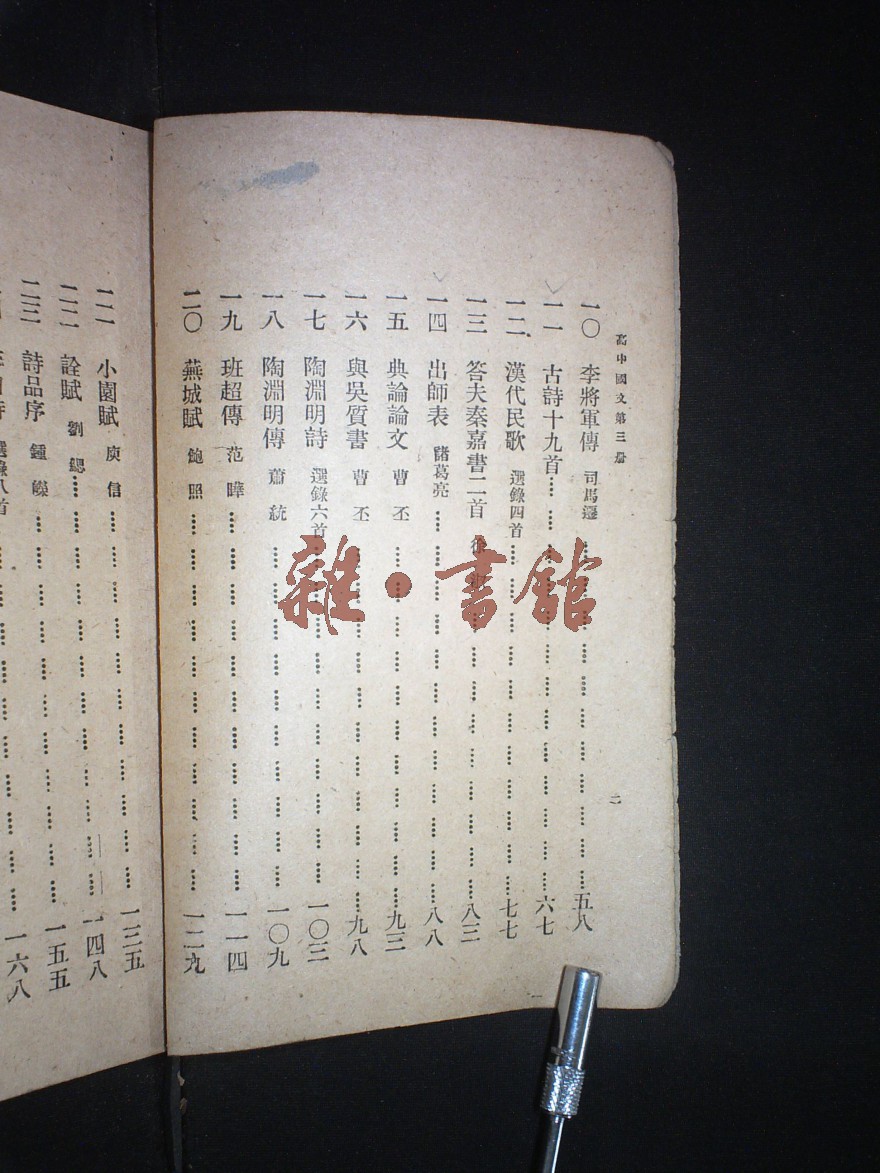 高中國文第三册
二
一〇 李將軍傳 司馬遷 五八
一一 古詩十九首 六七
一二 漢代民歌 選錄四首 七七
一三 答夫秦嘉書二首 徐 八三
一四 出師表 諸葛亮 八八
一五 典論論文 曹丕 九三
一六 與吳質書 曹丕 九八
一七 陶淵明詩 選錄六首 一〇三
一八 陶淵明傳 蕭統 一〇九
一九 班超傳 范曄 一一四
二〇 蕪城賦 鮑照 一二九
小園賦 庾信 一三五
詮賦 劉勰 一四八
二三 詩品序 鍾嶸 一五五
選錄八首 一六八
雜·書館